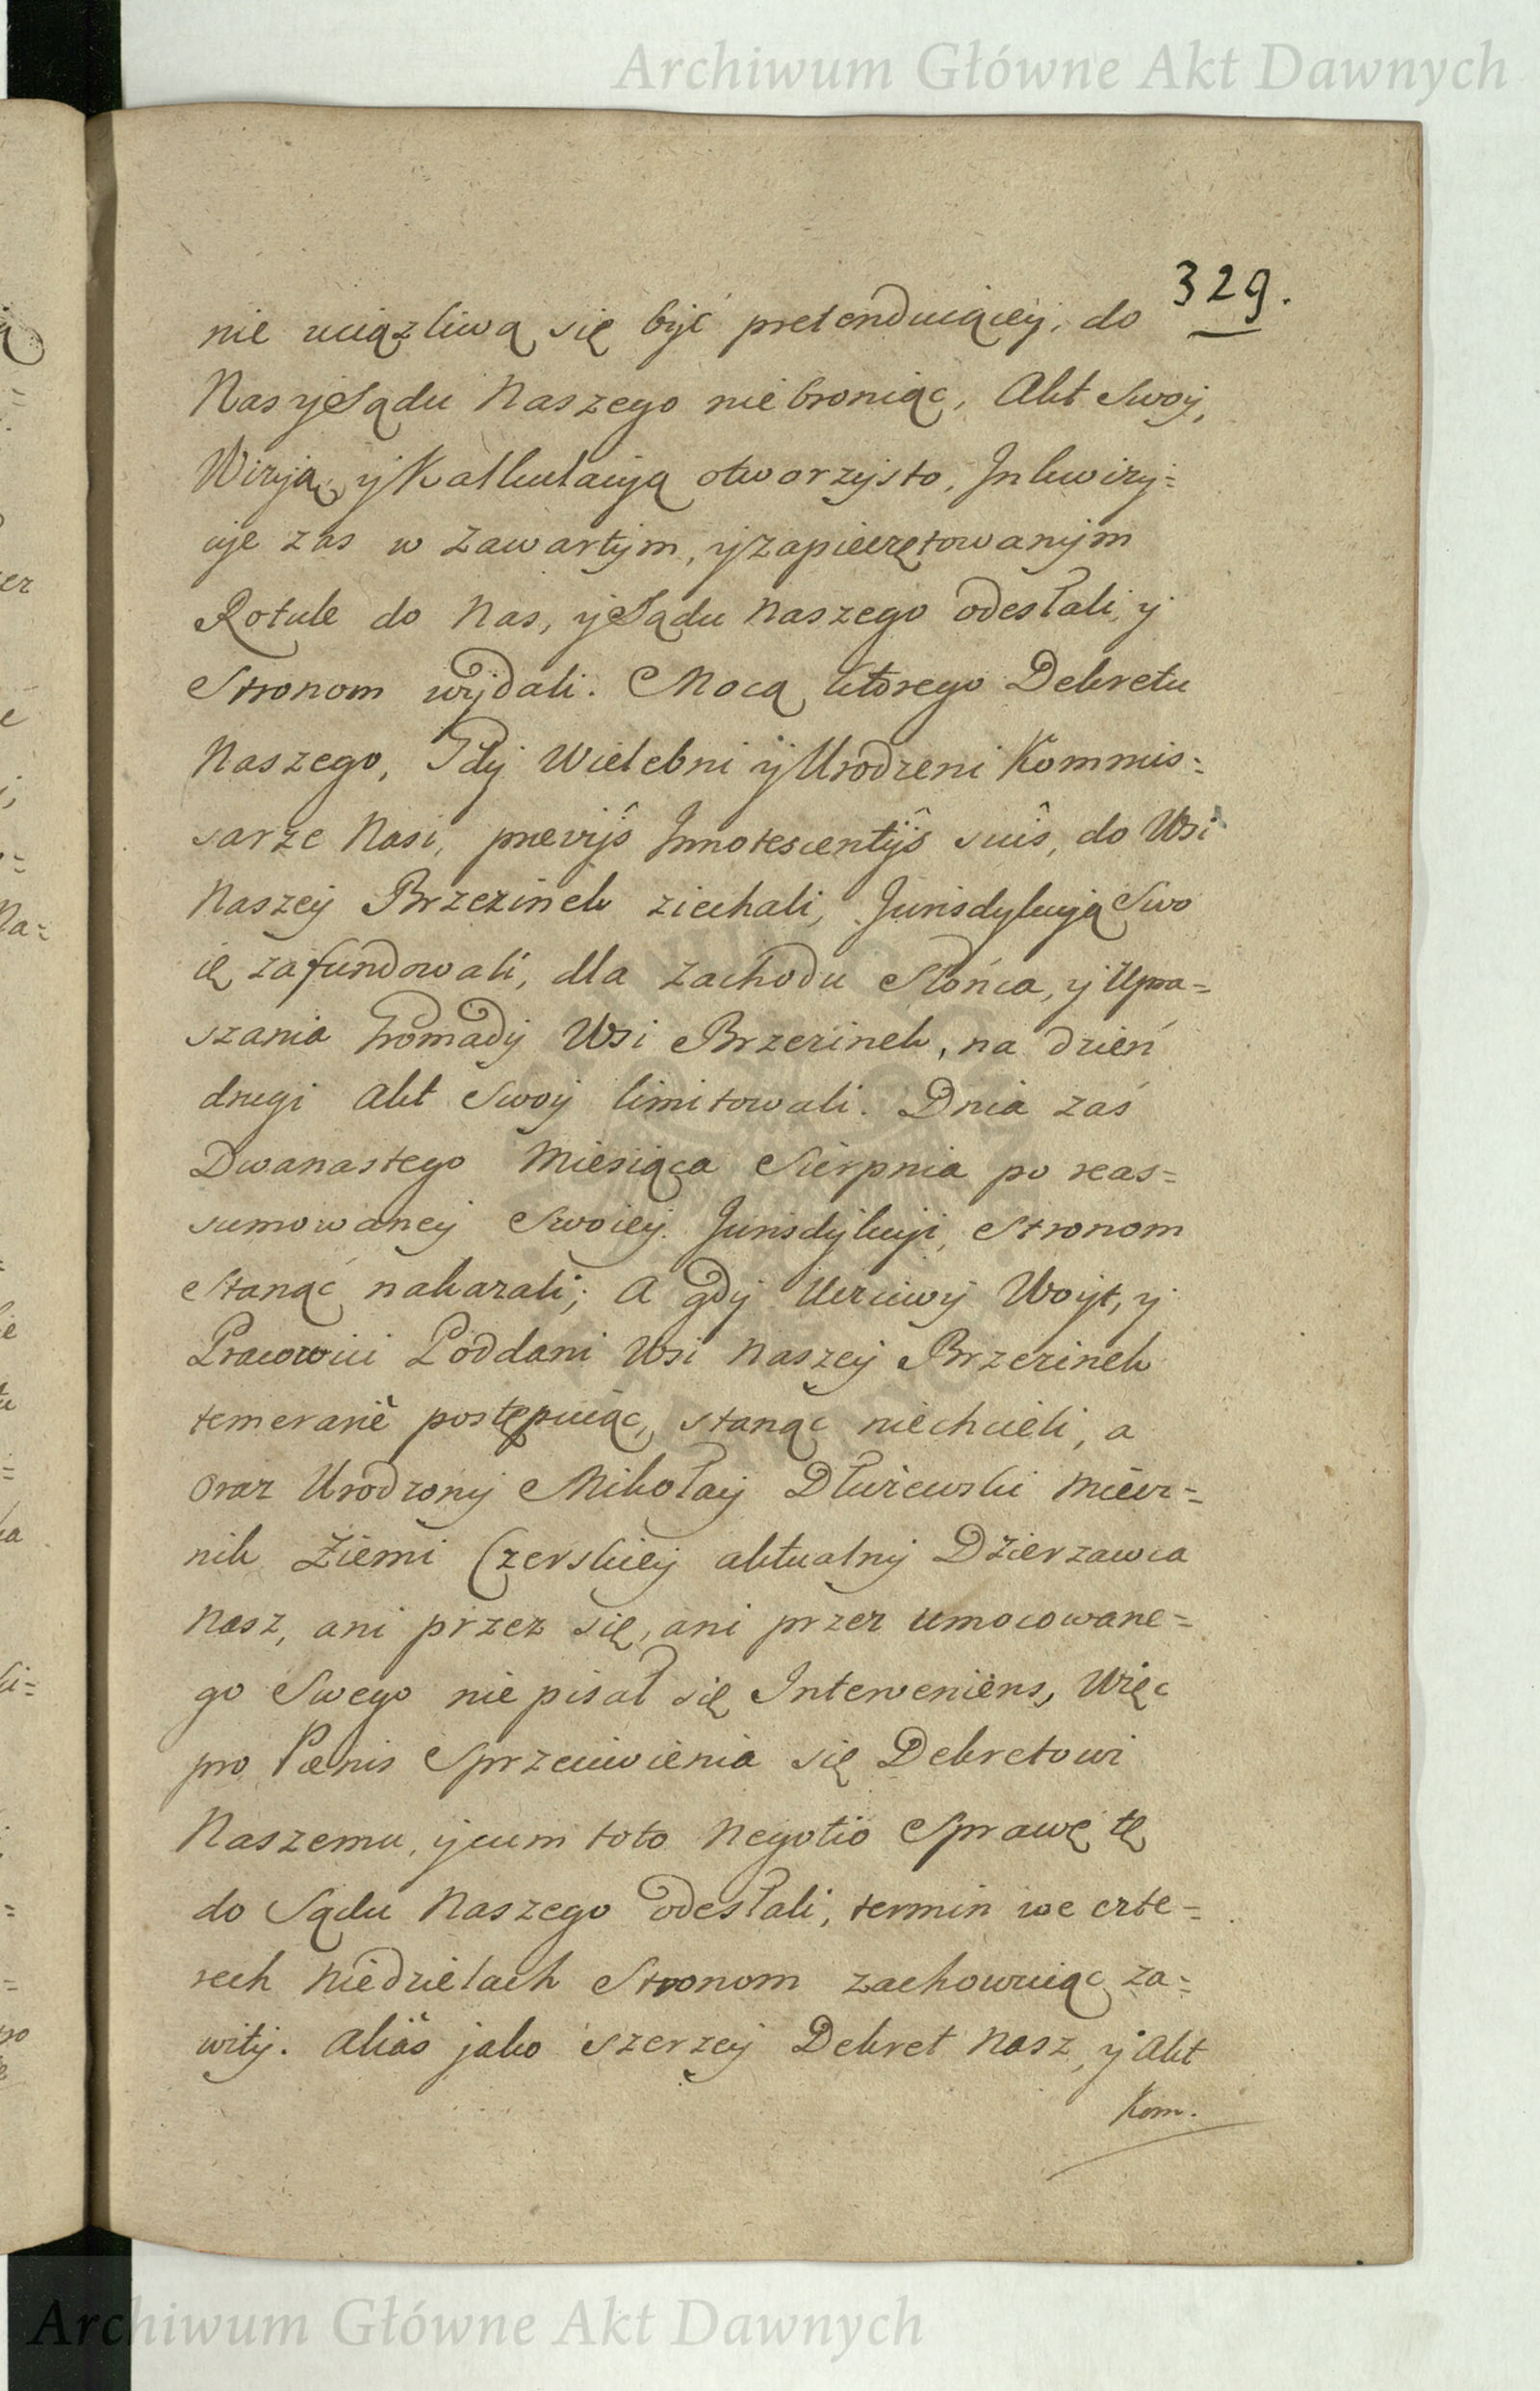 Archiwum Główne Akt Dawnych
329.
nie uciązliwą się być pretenduiącey, do
Nas y Sądu Naszego niebroniąc, Akt Swoy,
Wizyją, y Kalkulacyją otworzysto, Inkwizy=
cyje zas w zawartym, y zapieczętowanym
Rotule do Nas, y Sądu Naszego odesłali, y
Stronom wydali. Mocą ktorego Dekretu
Naszego, Gdy Wielebni y Urodzeni Kommis=
sarze Nasi, prævijs Innotescentijs suis, do Wsi
Naszey Brzezinek ziechali, Jurisdykcyją Swo
ię zafundowali, dla zachodu Słońca, y Upra=
szania hromady Wsi Brzezinek, na dzień
drugi Akt Swoy limitowali. Dnia zaś
Dwanastego Miesiąca Sierpnia po reas=
sumowaney Swoiey Jurisdykcyi, Stronom
Stanąć nakazali; A gdy Uczciwy Woyt, y
Pracowici Poddani Wsi Naszey Brzezinek
temerariè postępuiąc, stanąc niechcieli, a
oraz Urodzony Mikołay Dłużewski Miecz=
nik Ziemi Czerskiey aktualny Dzierzawca
Nasz, ani przez się, ani przez umocowane=
go Swego nie pisał się Interveniens, Więc
pro Pænis Sprzeciwienia się Dekretowi
Naszemu, y cum toto Negotio Sprawę tę
do Sądu Naszego odesłali, termin we czte=
rech Niedzielach Stronom zachowuiąc za=
wity. Aliàs jako szerzey Dekret Nasz, y Akt
Kom.
Archiwum Główne Akt Dawnych